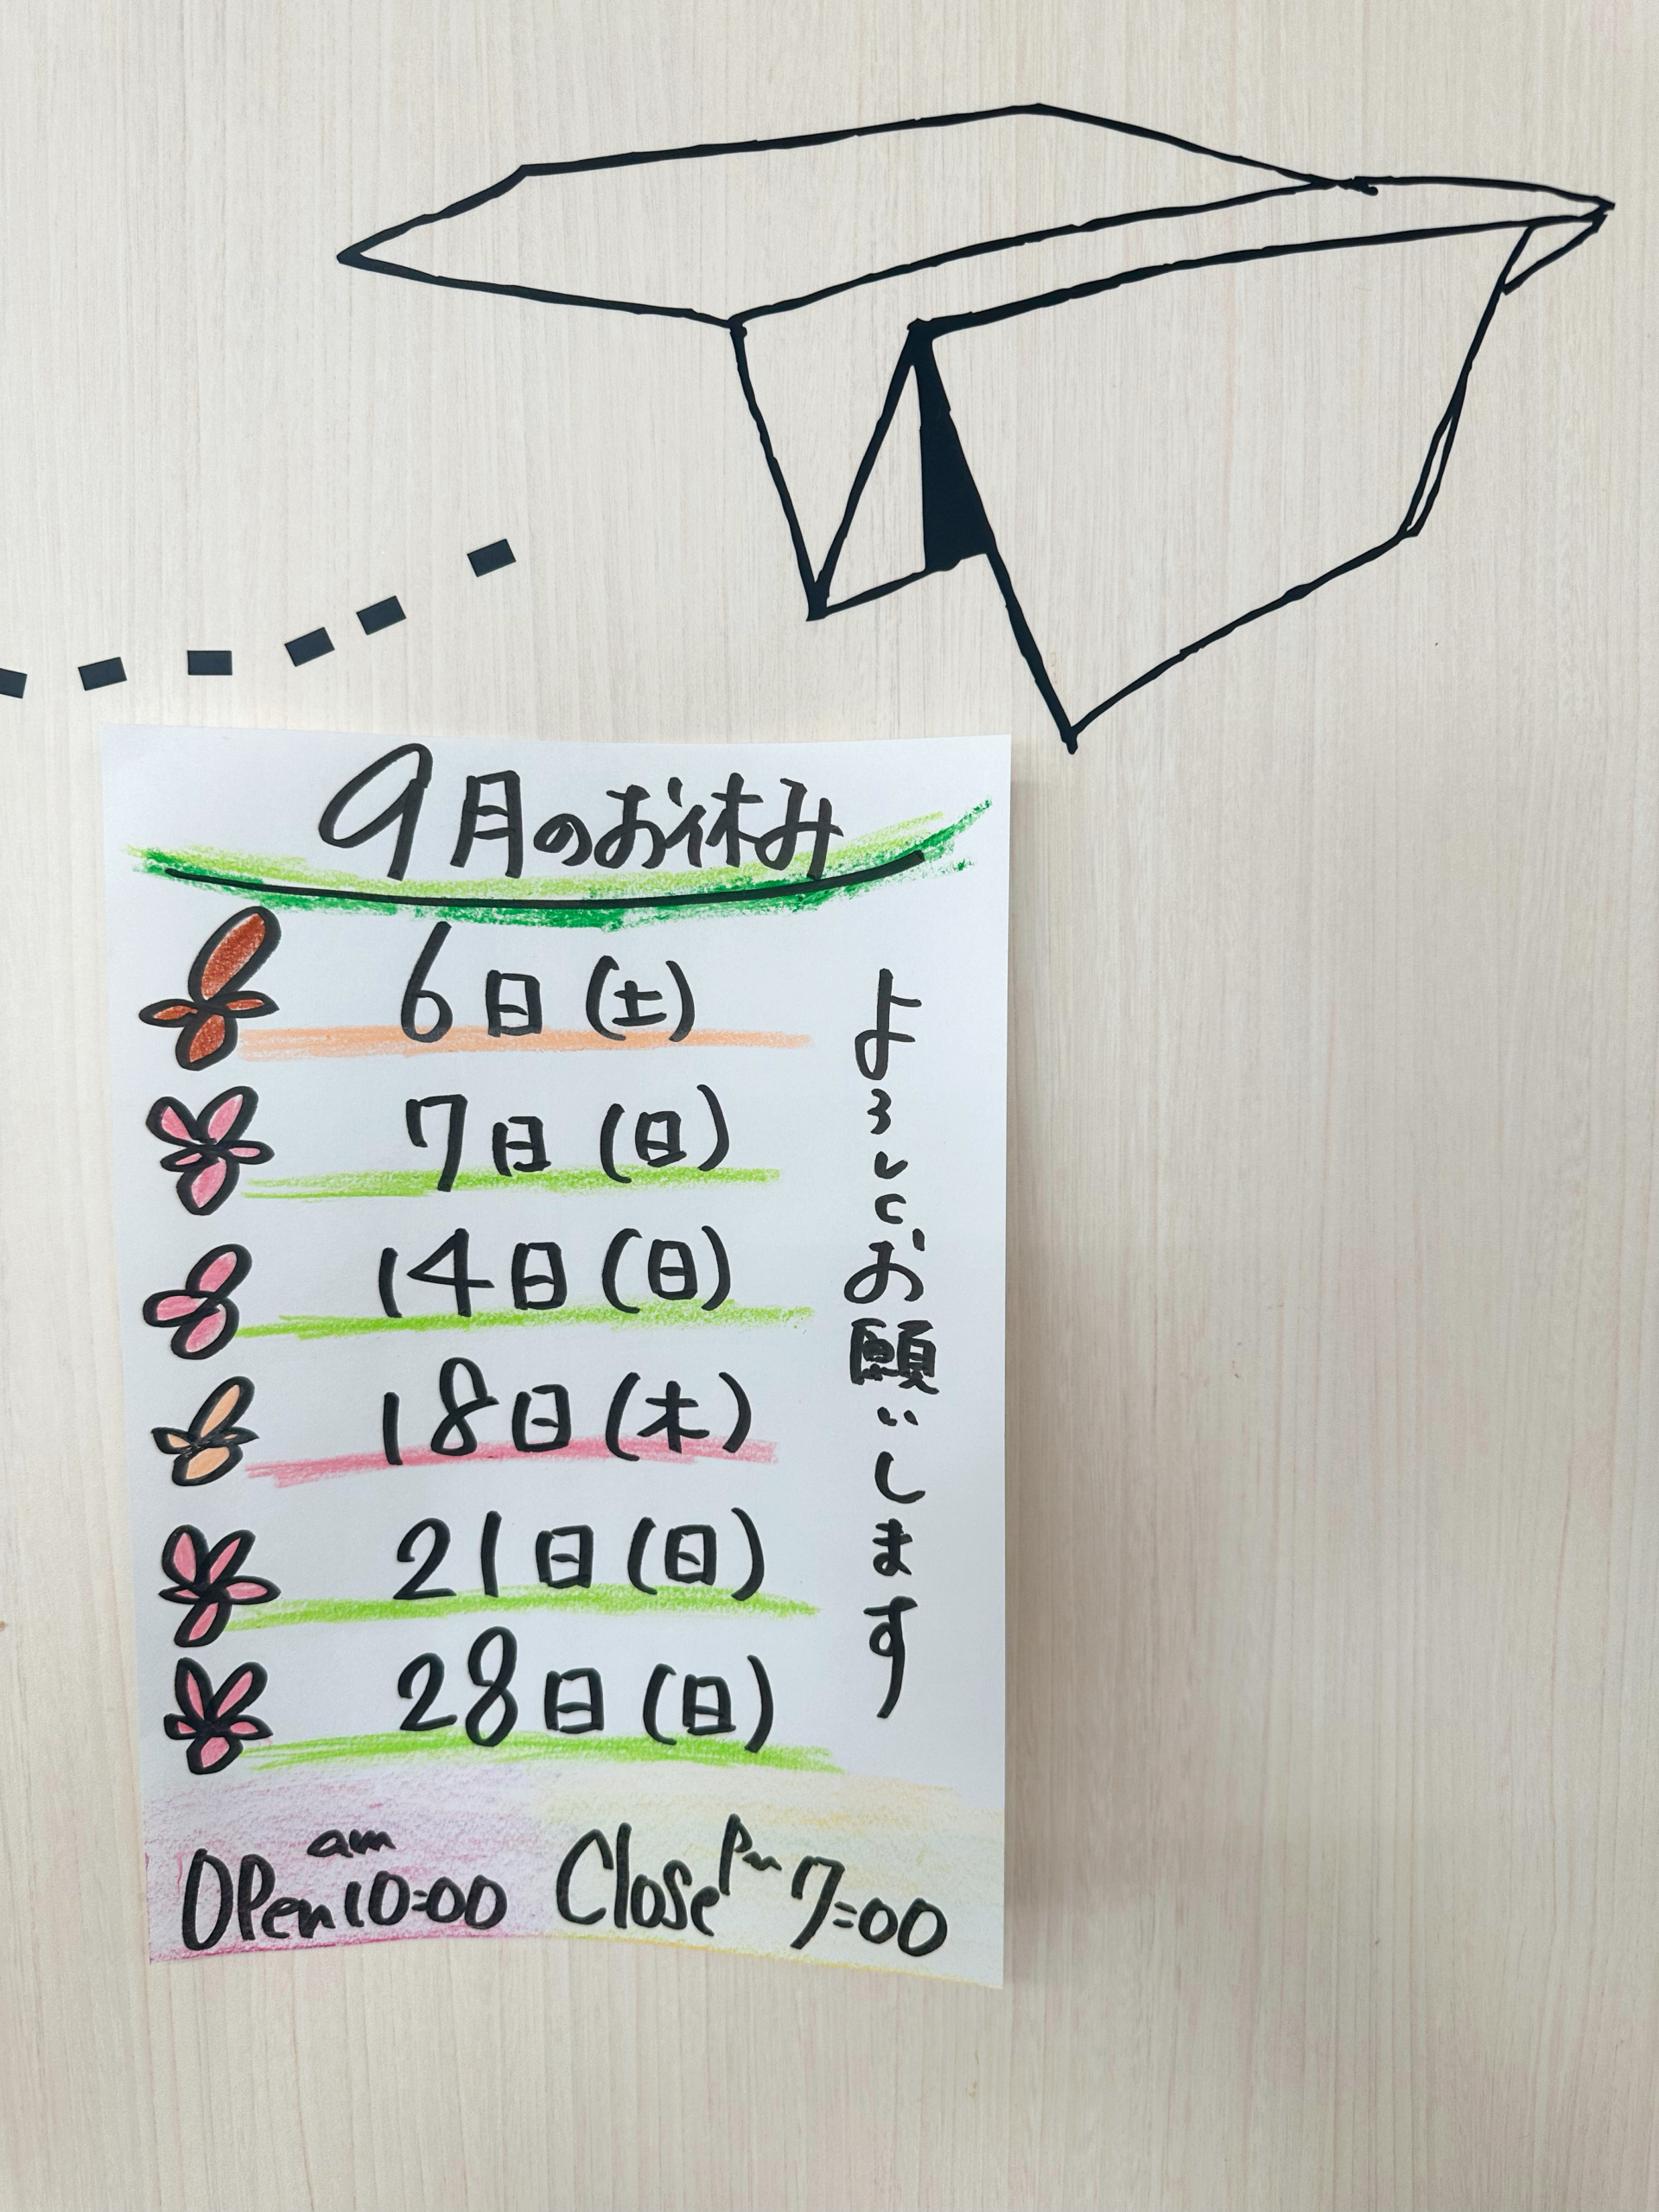 9月のお休み
6日(土)
7日(日)
14日(日)
18日(木)
21日(日)
28日(日)
よろしくお願いします
OPen am10:00 Close Pm 7:00